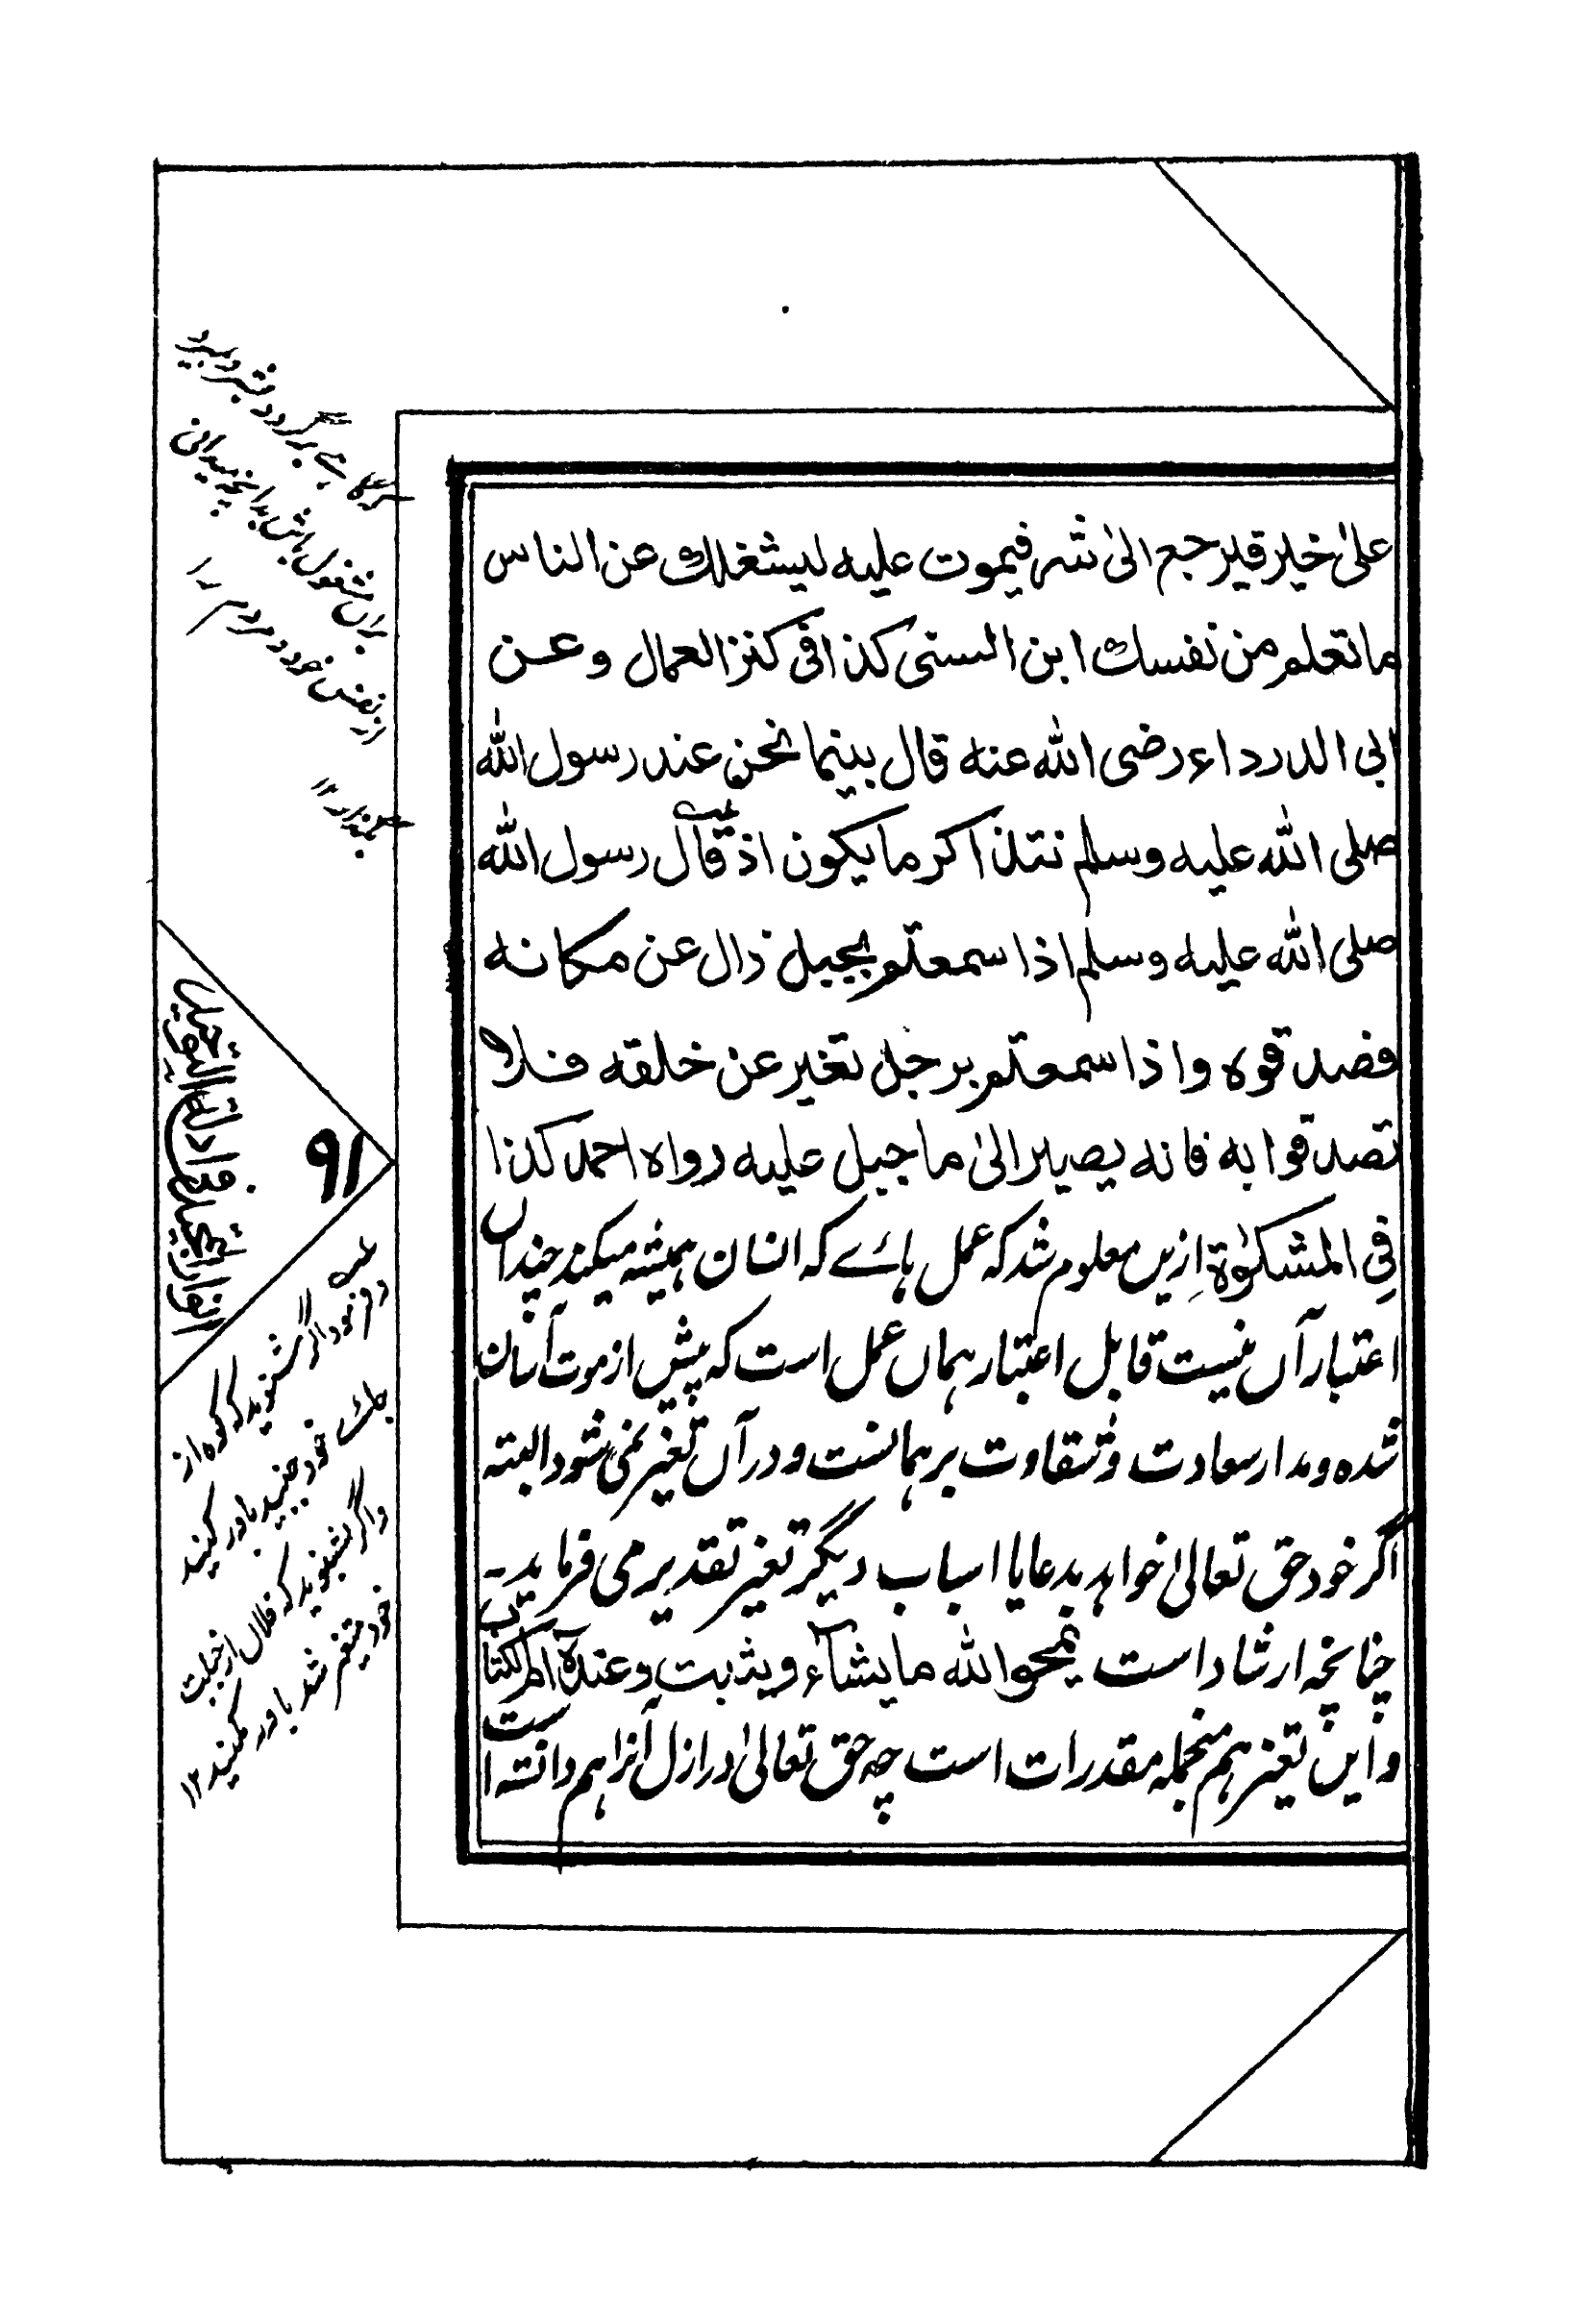 علیٰ خیر فیرجع الیٰ شر فیموت علیه لیشغلك عن الناس
ما تعلم من نفسك ابن السنی کذا فی کنز العمال وعن
ابی الدرداء رضی الله عنه قال بینما نحن عند رسول الله
صلی الله علیه وسلم نتذاکر ما یکون اذ قال رسول الله
صلی الله علیه وسلم اذا سمعتم بجبل زال عن مکانه
فصدقوه واذا سمعتم برجل تغیر عن خلقه فلا
تصدقوا به فانه یصیر الیٰ ما جبل علیه رواه احمد کذا
فِی المشکوٰة ازیں معلوم شد که عمل ہائے که انسان ہمیشہ میکند چنداں
اعتبار آں نیست قابل اعتبار ہماں عمل است که پیش از موت آسان
شده و مدار سعادت و شقاوت بر ہمانست و در آں تغیر نمی شود البته
اگر خود حق تعالیٰ خواہد بدعا یا اسباب دیگر تغیر تقدیر می فرماید۔
چنانچه ارشاد است یمحوا الله ما یشآء ویثبت وعندهٓ ام الکتاب
و ایں تغیر ہم منجمله مقدرات است چه حق تعالیٰ در ازل آنرا ہم دانسته است
برآں مشغول باش بدانچه میدانی
از نفس خود
۹۱
انوار التجید فی ادلة التوحید
و فرمود اگر شنوید که کوه از
جائے خود جنبید باور کنید
و اگر بشنوید که فلاں از جبلت
خود متغیر شد باور مکنید ۱۲